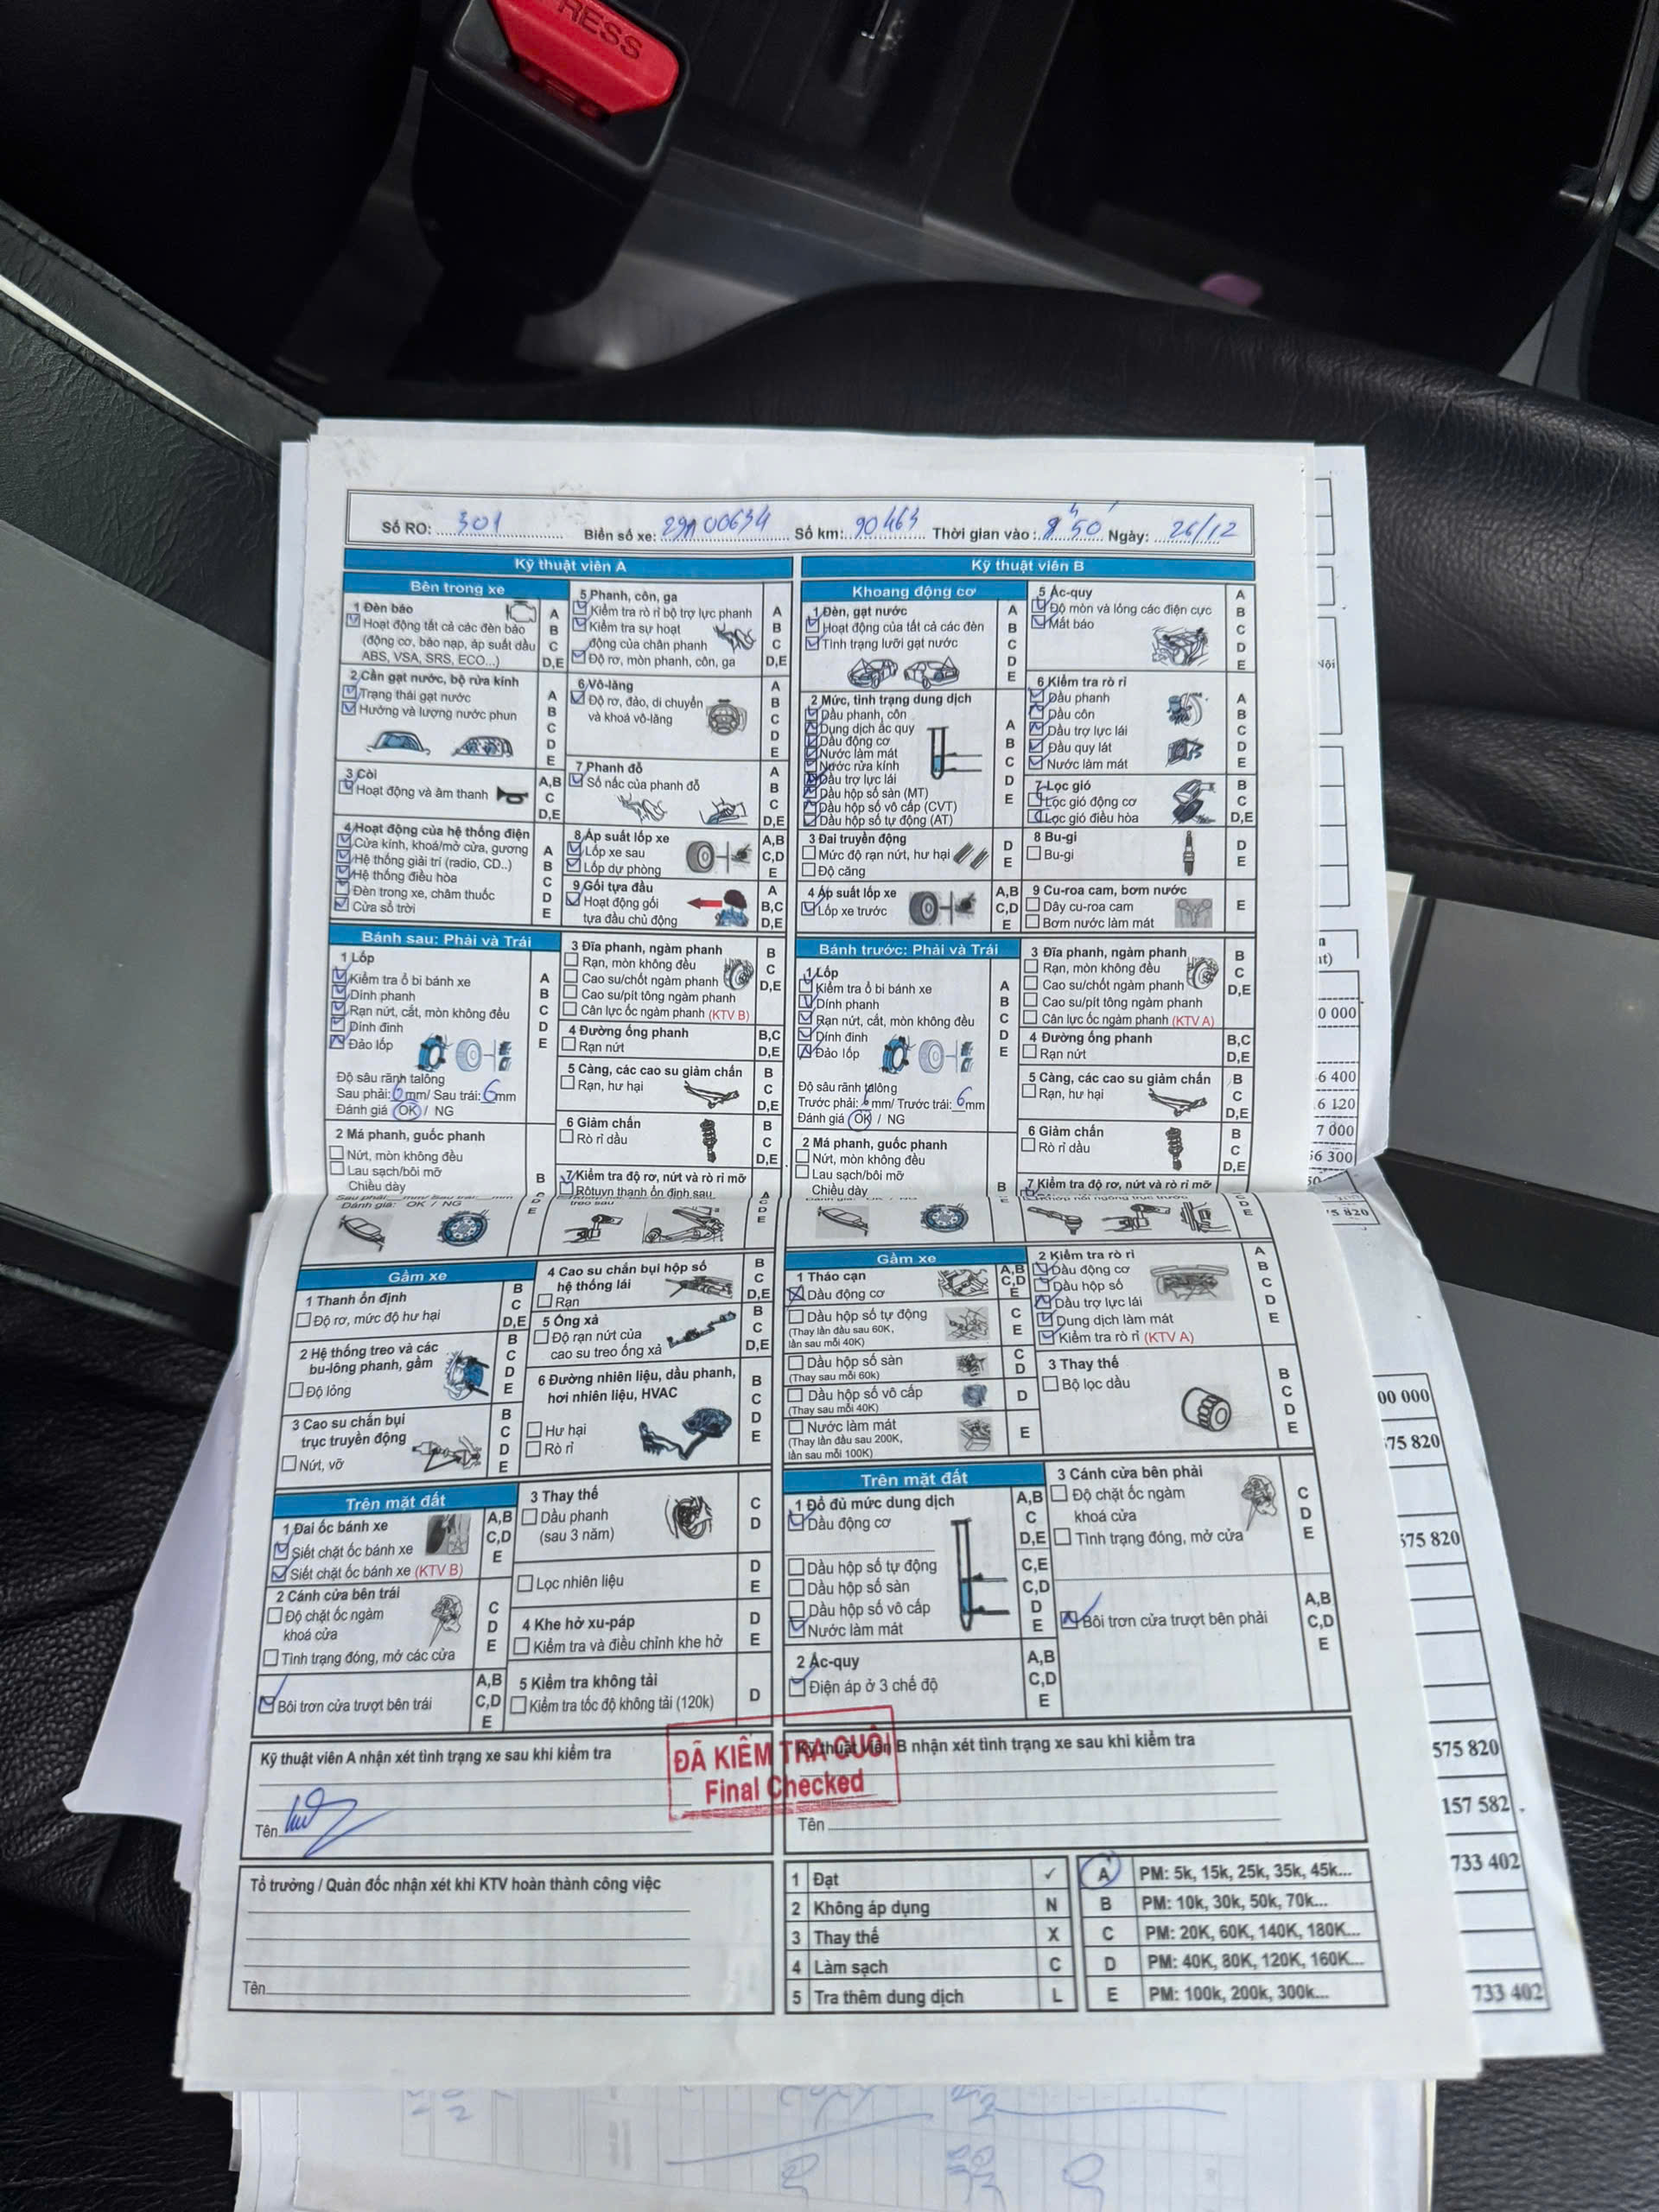 RESS
Số RO: 301 Biển số xe: 29A 00634 Số km: 90463 Thời gian vào: 8h50' Ngày: 26/12
Kỹ thuật viên A
Bên trong xe
1 Đèn báo
Hoạt động tất cả các đèn báo
(động cơ, báo nạp, áp suất dầu
ABS, VSA, SRS, ECO...)
A
B
C
D,E
2 Cần gạt nước, bộ rửa kính
Trạng thái gạt nước
Hướng và lượng nước phun
A
B
C
D
E
3 Còi
Hoạt động và âm thanh
A,B
C
D,E
4 Hoạt động của hệ thống điện
Cửa kính, khoá/mở cửa, gương
Hệ thống giải trí (radio, CD..)
Hệ thống điều hòa
Đèn trong xe, châm thuốc
Cửa sổ trời
A
B
C
D
E
5 Phanh, côn, ga
Kiểm tra rò rỉ bộ trợ lực phanh
Kiểm tra sự hoạt
động của chân phanh
Độ rơ, mòn phanh, côn, ga
A
B
C
D,E
6 Vô-lăng
Độ rơ, đảo, di chuyển
và khoá vô-lăng
A
B
C
D
E
7 Phanh đỗ
Số nấc của phanh đỗ
A
B
C
D,E
8 Áp suất lốp xe
Lốp xe sau
Lốp dự phòng
A,B
C,D
E
9 Gối tựa đầu
Hoạt động gối
tựa đầu chủ động
A
B,C
D,E
Bánh sau: Phải và Trái
1 Lốp
Kiểm tra ổ bi bánh xe
Dính phanh
Rạn nứt, cắt, mòn không đều
Dính đinh
Đảo lốp
A
B
C
D
E
Độ sâu rãnh talông
Sau phải: 6mm/ Sau trái: 6mm
Đánh giá OK / NG
2 Má phanh, guốc phanh
Nứt, mòn không đều
Lau sạch/bôi mỡ
Chiều dày
B
3 Đĩa phanh, ngàm phanh
Rạn, mòn không đều
Cao su/chốt ngàm phanh
Cao su/pít tông ngàm phanh
Cân lực ốc ngàm phanh (KTV B)
B
C
D,E
4 Đường ống phanh
Rạn nứt
B,C
D,E
5 Càng, các cao su giảm chấn
Rạn, hư hại
B
C
D,E
6 Giảm chấn
Rò rỉ dầu
B
C
D,E
7 Kiểm tra độ rơ, nứt và rò rỉ mỡ
Rôtuyn thanh ổn định sau
Kỹ thuật viên B
Khoang động cơ
1 Đèn, gạt nước
Hoạt động của tất cả các đèn
Tình trạng lưỡi gạt nước
A
B
C
D
E
2 Mức, tình trạng dung dịch
Dầu phanh, côn
Dung dịch ắc quy
Dầu động cơ
Nước làm mát
Nước rửa kính
Dầu trợ lực lái
Dầu hộp số sàn (MT)
Dầu hộp số vô cấp (CVT)
Dầu hộp số tự động (AT)
A
B
C
D
E
3 Đai truyền động
Mức độ rạn nứt, hư hại
Độ căng
D
E
4 Áp suất lốp xe
Lốp xe trước
A,B
C,D
E
5 Ác-quy
Độ mòn và lỏng các điện cực
Mắt báo
A
B
C
D
E
6 Kiểm tra rò rỉ
Dầu phanh
Dầu côn
Dầu trợ lực lái
Dầu quy lát
Nước làm mát
A
B
C
D
E
7 Lọc gió
Lọc gió động cơ
Lọc gió điều hòa
B
C
D,E
8 Bu-gi
Bu-gi
D
E
9 Cu-roa cam, bơm nước
Dây cu-roa cam
Bơm nước làm mát
E
Bánh trước: Phải và Trái
1 Lốp
Kiểm tra ổ bi bánh xe
Dính phanh
Rạn nứt, cắt, mòn không đều
Dính đinh
Đảo lốp
A
B
C
D
E
Độ sâu rãnh talông
Trước phải: 6mm/ Trước trái: 6mm
Đánh giá OK / NG
2 Má phanh, guốc phanh
Nứt, mòn không đều
Lau sạch/bôi mỡ
Chiều dày
B
3 Đĩa phanh, ngàm phanh
Rạn, mòn không đều
Cao su/chốt ngàm phanh
Cao su/pít tông ngàm phanh
Cân lực ốc ngàm phanh (KTV A)
B
C
D,E
4 Đường ống phanh
Rạn nứt
B,C
D,E
5 Càng, các cao su giảm chấn
Rạn, hư hại
B
C
D,E
6 Giảm chấn
Rò rỉ dầu
B
C
D,E
7 Kiểm tra độ rơ, nứt và rò rỉ mỡ
Đánh giá: OK / NG
treo sau
Gầm xe
1 Thanh ổn định
Độ rơ, mức độ hư hại
B
C
D,E
2 Hệ thống treo và các
bu-lông phanh, gầm
Độ lỏng
B
C
D
E
3 Cao su chắn bụi
trục truyền động
Nứt, vỡ
B
C
D
E
4 Cao su chắn bụi hộp số
hệ thống lái
Rạn
B
C
D,E
5 Ống xả
Độ rạn nứt của
cao su treo ống xả
B
C
D,E
6 Đường nhiên liệu, dầu phanh,
hơi nhiên liệu, HVAC
Hư hại
Rò rỉ
B
C
D
E
Trên mặt đất
1 Đai ốc bánh xe
Siết chặt ốc bánh xe
Siết chặt ốc bánh xe (KTV B)
A,B
C,D
E
2 Cánh cửa bên trái
Độ chặt ốc ngàm
khoá cửa
Tình trạng đóng, mở các cửa
C
D
E
Bôi trơn cửa trượt bên trái
A,B
C,D
E
3 Thay thế
Dầu phanh
(sau 3 năm)
C
D
Lọc nhiên liệu
D
E
4 Khe hở xu-páp
Kiểm tra và điều chỉnh khe hở
D
E
5 Kiểm tra không tải
Kiểm tra tốc độ không tải (120k)
D
Gầm xe
1 Tháo cạn
Dầu động cơ
A,B
C,D
E
Dầu hộp số tự động
(Thay lần đầu sau 60K,
lần sau mỗi 40K)
C
E
Dầu hộp số sàn
(Thay sau mỗi 60k)
C
D
Dầu hộp số vô cấp
(Thay sau mỗi 40K)
D
Nước làm mát
(Thay lần đầu sau 200K,
lần sau mỗi 100K)
E
2 Kiểm tra rò rỉ
Dầu động cơ
Dầu hộp số
Dầu trợ lực lái
Dung dịch làm mát
Kiểm tra rò rỉ (KTV A)
A
B
C
D
E
3 Thay thế
Bộ lọc dầu
B
C
D
E
Trên mặt đất
1 Đổ đủ mức dung dịch
Dầu động cơ
A,B
C
D,E
Dầu hộp số tự động
Dầu hộp số sàn
Dầu hộp số vô cấp
Nước làm mát
C,E
C,D
D
E
2 Ác-quy
Điện áp ở 3 chế độ
A,B
C,D
E
3 Cánh cửa bên phải
Độ chặt ốc ngàm
khoá cửa
Tình trạng đóng, mở cửa
C
D
E
Bôi trơn cửa trượt bên phải
A,B
C,D
E
Kỹ thuật viên A nhận xét tình trạng xe sau khi kiểm tra
Tên
ĐÃ KIỂM TRA CUỐI
Final Checked
Kỹ thuật viên B nhận xét tình trạng xe sau khi kiểm tra
Tên
Tổ trưởng / Quản đốc nhận xét khi KTV hoàn thành công việc
Tên
1 Đạt ✓
2 Không áp dụng N
3 Thay thế X
4 Làm sạch C
5 Tra thêm dung dịch L
A PM: 5k, 15k, 25k, 35k, 45k...
B PM: 10k, 30k, 50k, 70k...
C PM: 20K, 60K, 140K, 180K...
D PM: 40K, 80K, 120K, 160K...
E PM: 100k, 200k, 300k...
0 000
6 400
6 120
7 000
6 300
75 820
00 000
75 820
575 820
575 820
157 582
733 402
733 402